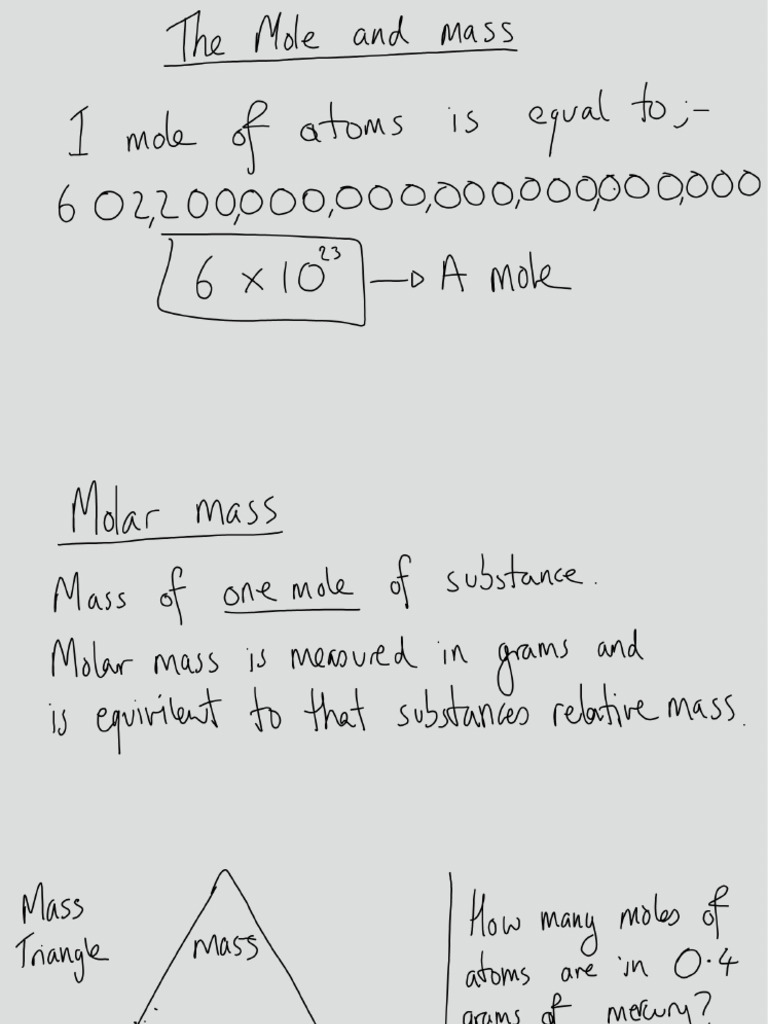 The Mole and mass
1 mole of atoms is equal to;-
602,200,000,000,000,000,000,000
6 x 10²³ → A mole
Molar mass
Mass of one mole of substance.
Molar mass is mesured in grams and
is equivilent to that substances relative mass.
Mass
Triangle
mass
How many moles of
atoms are in 0.4
grams of mercury?